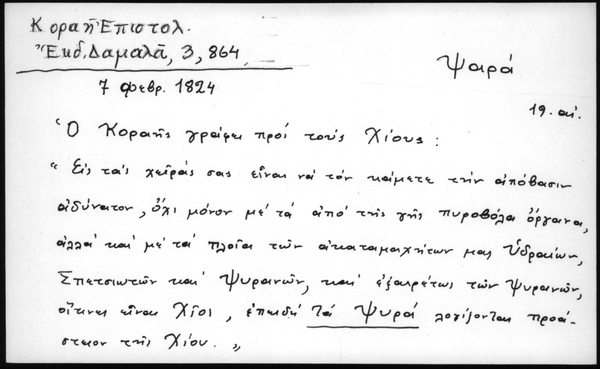 Κοραῆ Ἐπιστολ.
Ἔκδ. Δαμαλᾶ, 3, 864
Ψαρά
7 φεβρ. 1824
19. αἰ.
Ὁ Κοραῆς γράφει πρὸς τοὺς Χίους:
"Εἰς τὰς χεῖρας σας εἶναι νὰ τὸν κάμετε τὴν ἀπόβασιν
ἀδύνατον, ὄχι μόνον μὲ τὰ ἀπὸ τῆς γῆς πυροβόλα ὄργανα,
ἀλλὰ καὶ μὲ τὰ πλοῖα τῶν ἀκαταμαχήτων μας Ὑδραίων,
Σπετσιωτῶν καὶ Ψυριανῶν, καὶ ἐξαιρέτως τῶν Ψυριανῶν,
οἵτινες εἶναι Χῖοι, ἐπειδὴ τὰ Ψυρά λογίζονται προά-
στειον τῆς Χίου."